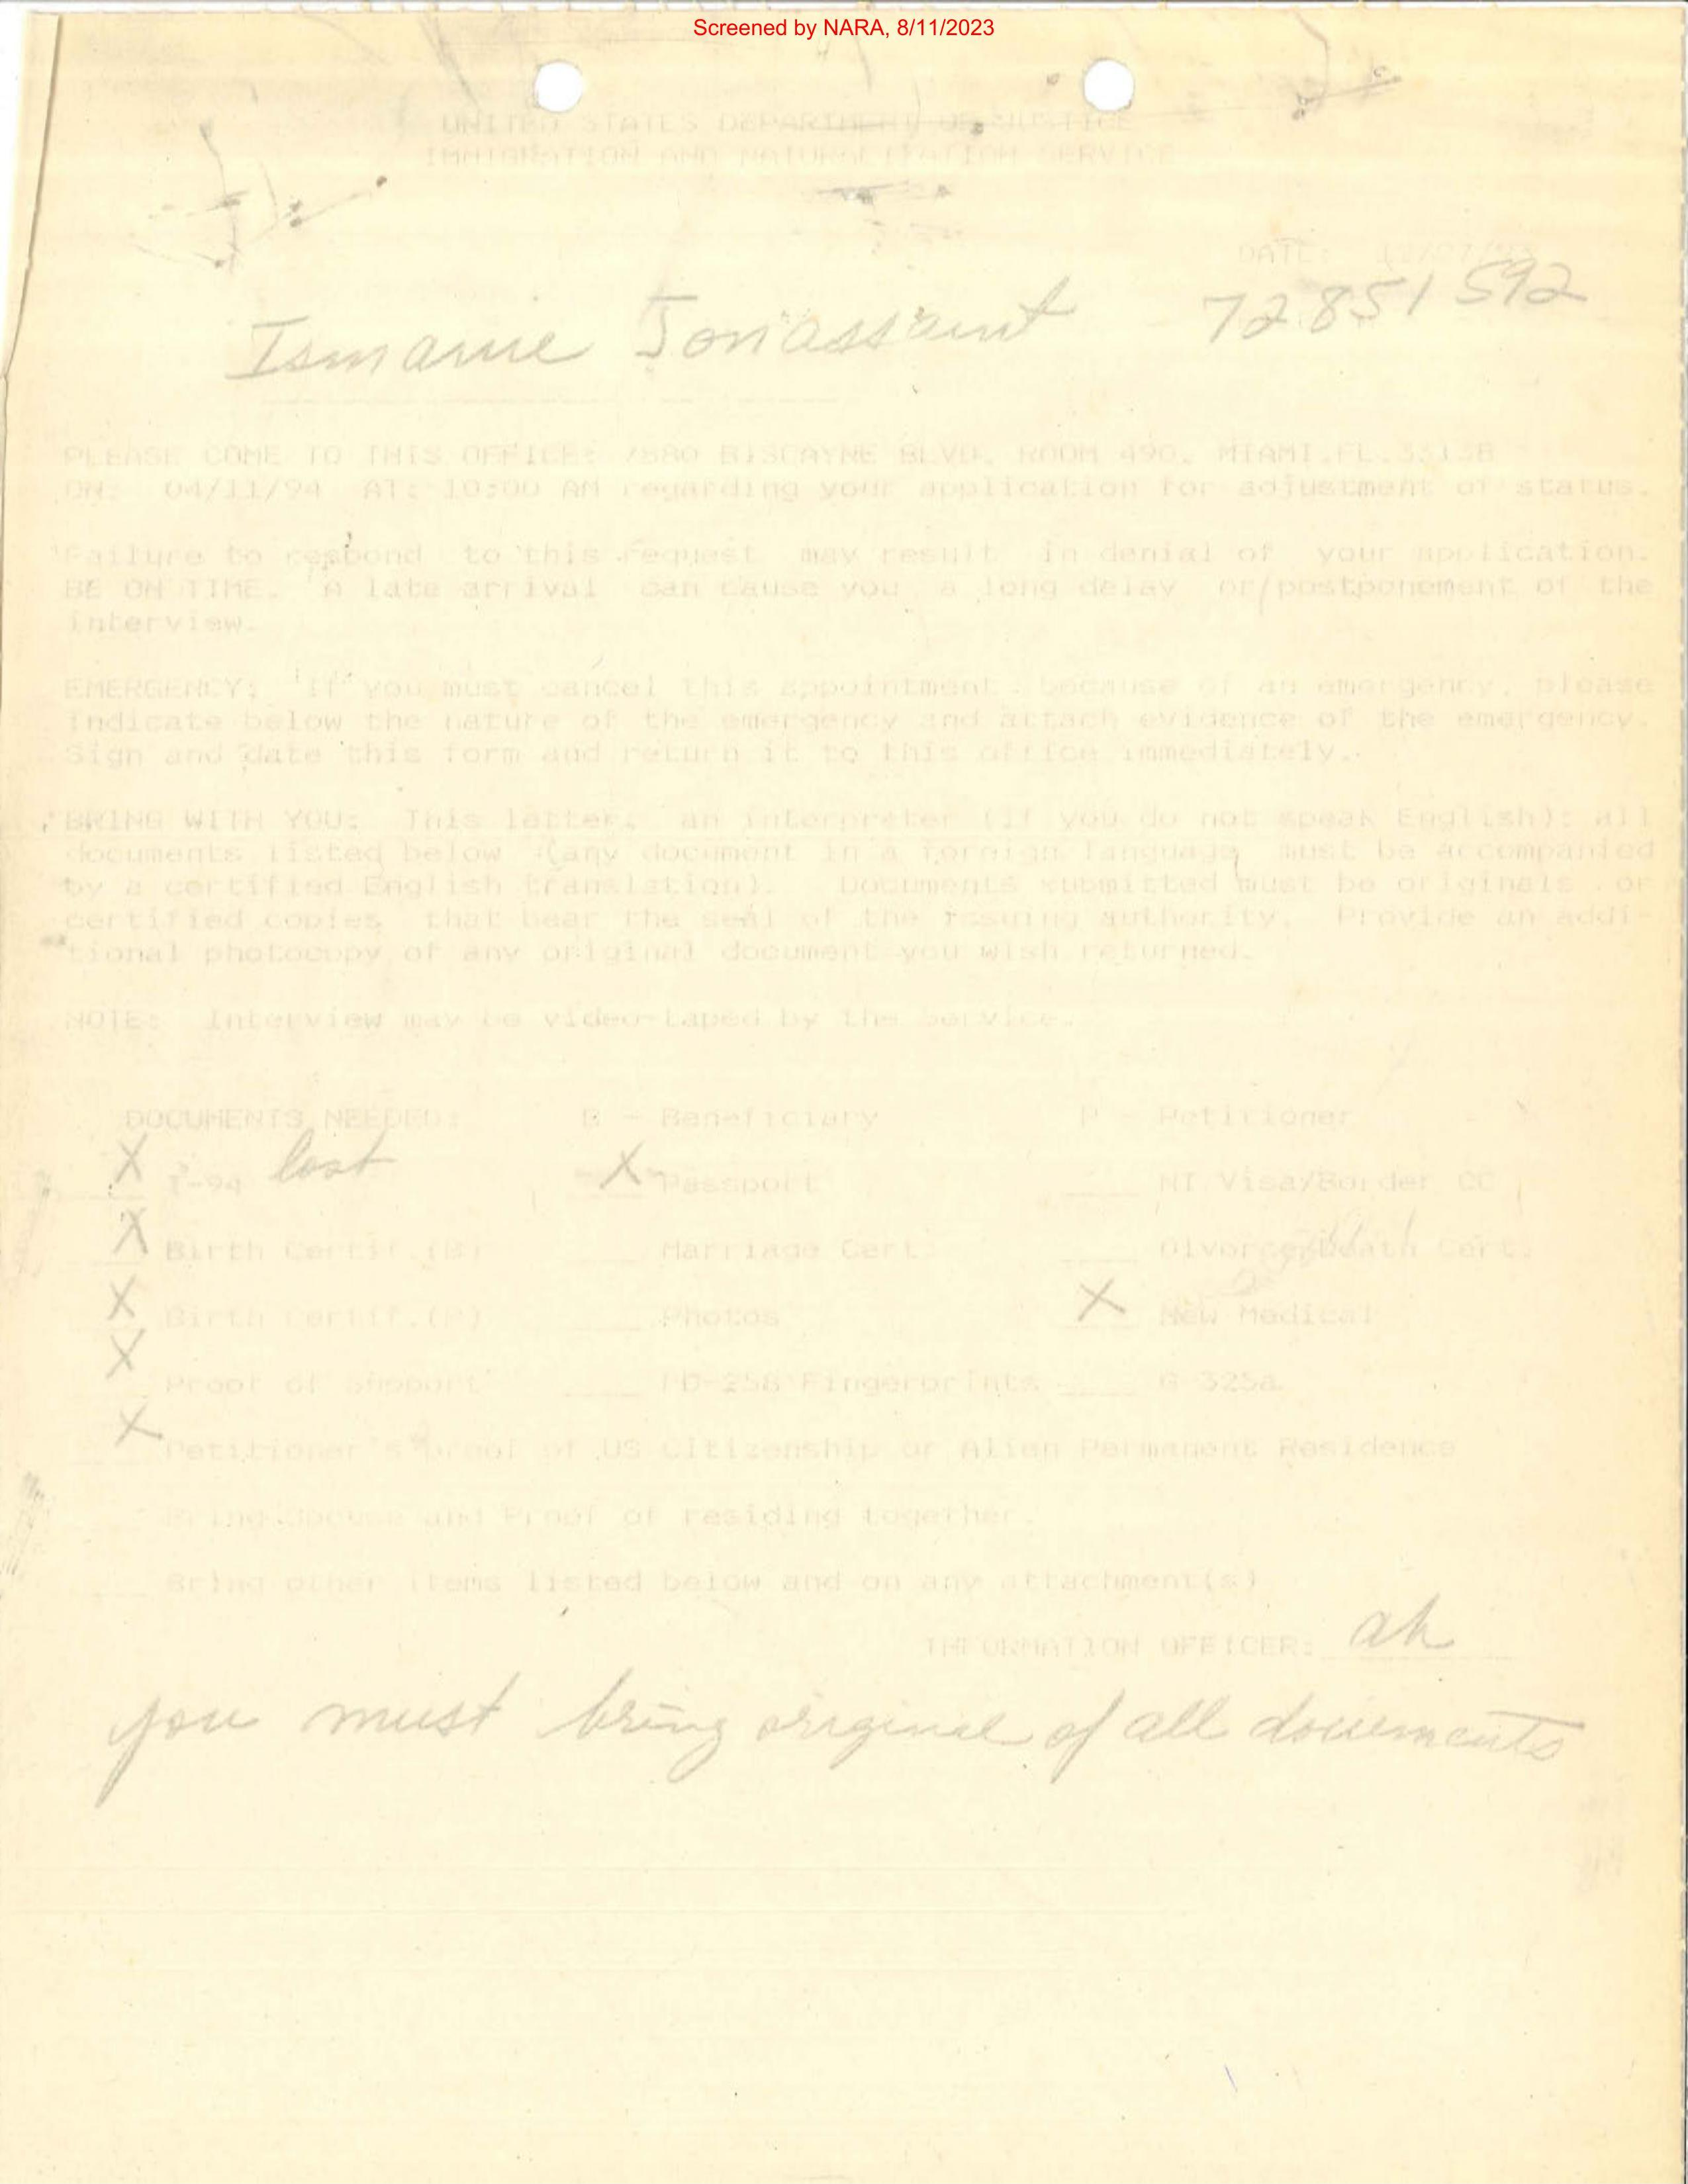 Screened by NARA, 8/11/2023
UNITED STATES DEPARTMENT OF JUSTICE
IMMIGRATION AND NATURALIZATION SERVICE
DATE:
Ismanie Jonassaint 72851592
PLEASE COME TO THIS OFFICE: 7880 BISCAYNE BLVD. ROOM 490, MIAMI.FL.33138
ON: 04/11/94 AT: 10:00 AM regarding your application for adjustment of status.
Failure to respond to this request may result in denial of your application.
BE ON TIME. A late arrival can cause you a long delay or/postponement of the
interview.
EMERGENCY: If you must cancel this appointment because of an emergency, please
indicate below the nature of the emergency and attach evidence of the emergency.
Sign and date this form and return it to this office immediately.
BRING WITH YOU: This letter, an interpreter (if you do not speak English); all
documents listed below (any document in a foreign language must be accompanied
by a certified English translation). Documents submitted must be originals or
certified copies that bear the seal of the issuing authority. Provide an addi-
tional photocopy of any original document you wish returned.
NOTE: Interview may be video-taped by the Service.
DOCUMENTS NEEDED: B - Beneficiary P - Petitioner
X I-94 lost X Passport ___ NI Visa/Border CC
X Birth Certif.(B) ___ Marriage Cert. ___ Divorce/Death Cert.
X Birth Certif.(P) ___ Photos X New Medical
X Proof of Support ___ FD-258 Fingerprints ___ G-325a
X Petitioner's proof of US Citizenship or Alien Permanent Residence
___ Bring Spouse and Proof of residing together.
___ Bring other items listed below and on any attachment(s)
INFORMATION OFFICER: ah
you must bring original of all documents